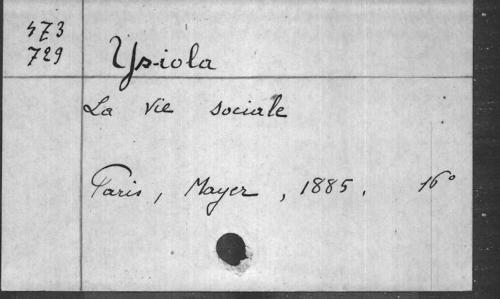 473
729
Ysiola
La vie sociale
Paris, Mayer, 1885. 16°